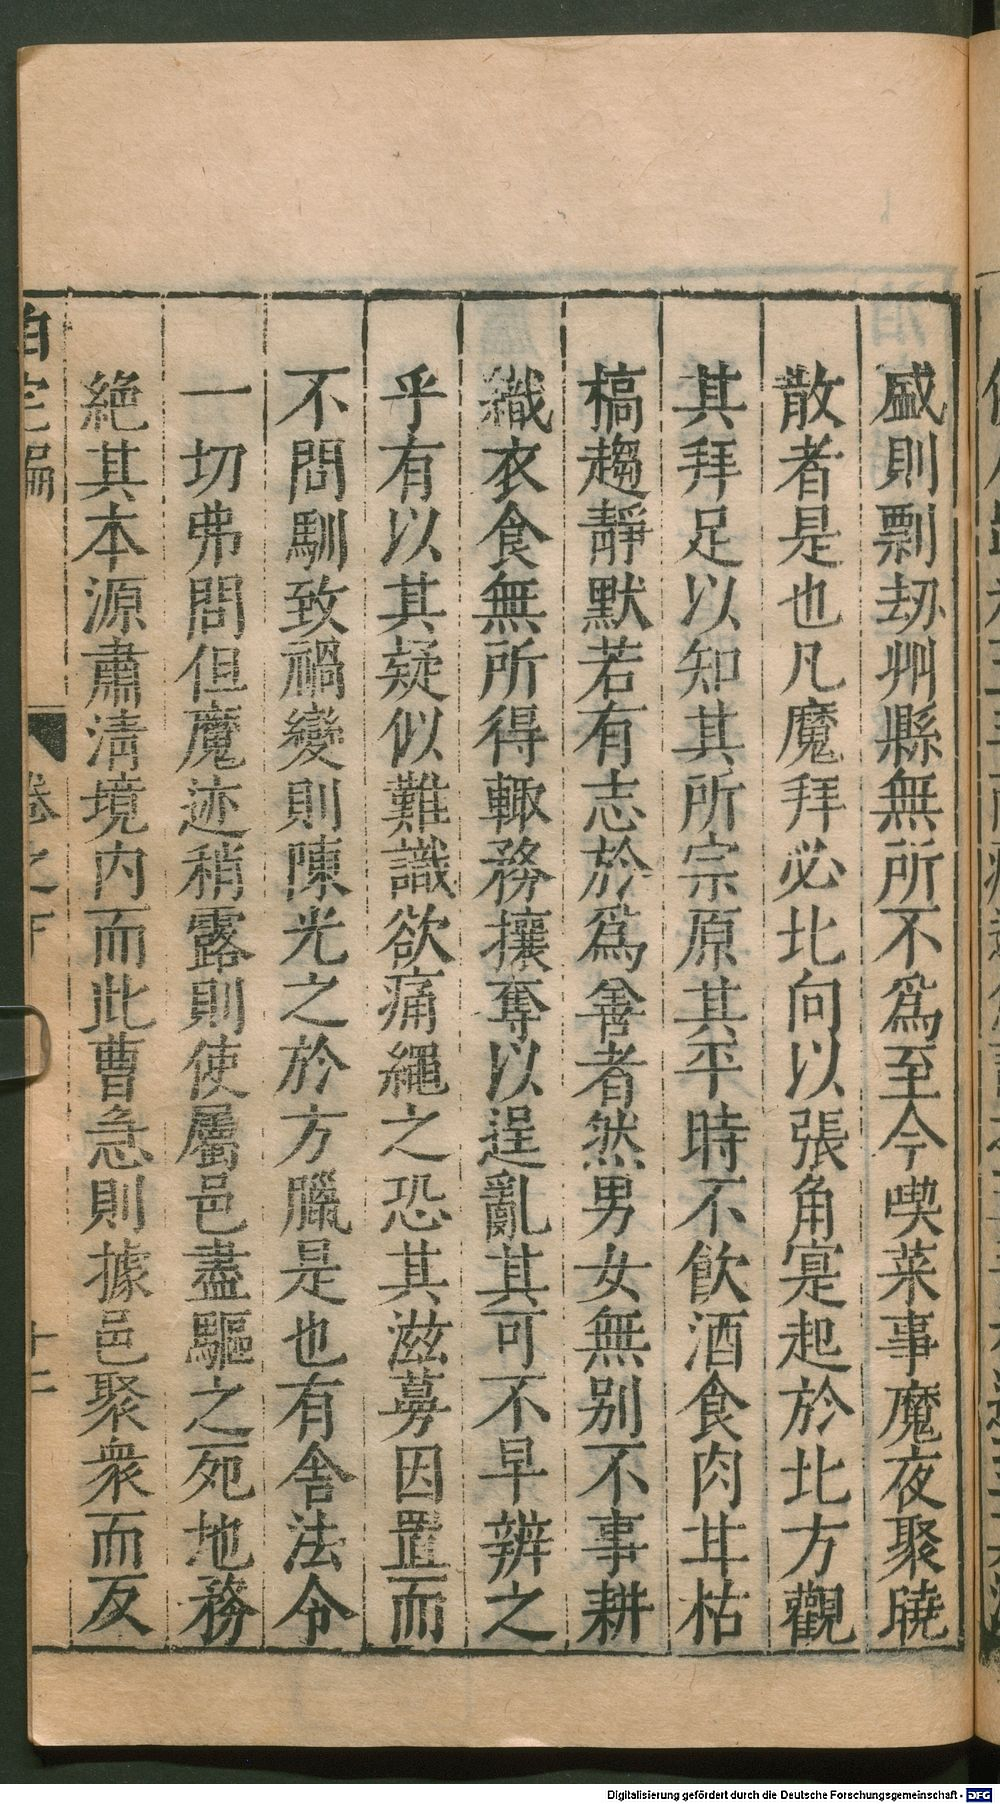 盛則剽刼州縣無所不爲至今喫菜事魔夜聚曉
散者是也凡魔拜必北向以張角寔起於北方觀
其拜足以知其所宗原其平時不飮酒食肉甘枯
槁趨靜默若有志於爲善者然男女無别不事耕
織衣食無所得輙務攘奪以逞亂其可不早辨之
乎有以其疑似難識欲痛繩之恐其滋蔓因置而
不問馴致禍變則陳光之於方臘是也有舎法令
一切弗問但魔迹稍露則使屬邑盡驅之死地務
絶其本源肅淸境内而此曹急則據邑聚衆而反
泊宅編
卷之下
十二
Digitalisierung gefördert durch die Deutsche Forschungsgemeinschaft - DFG